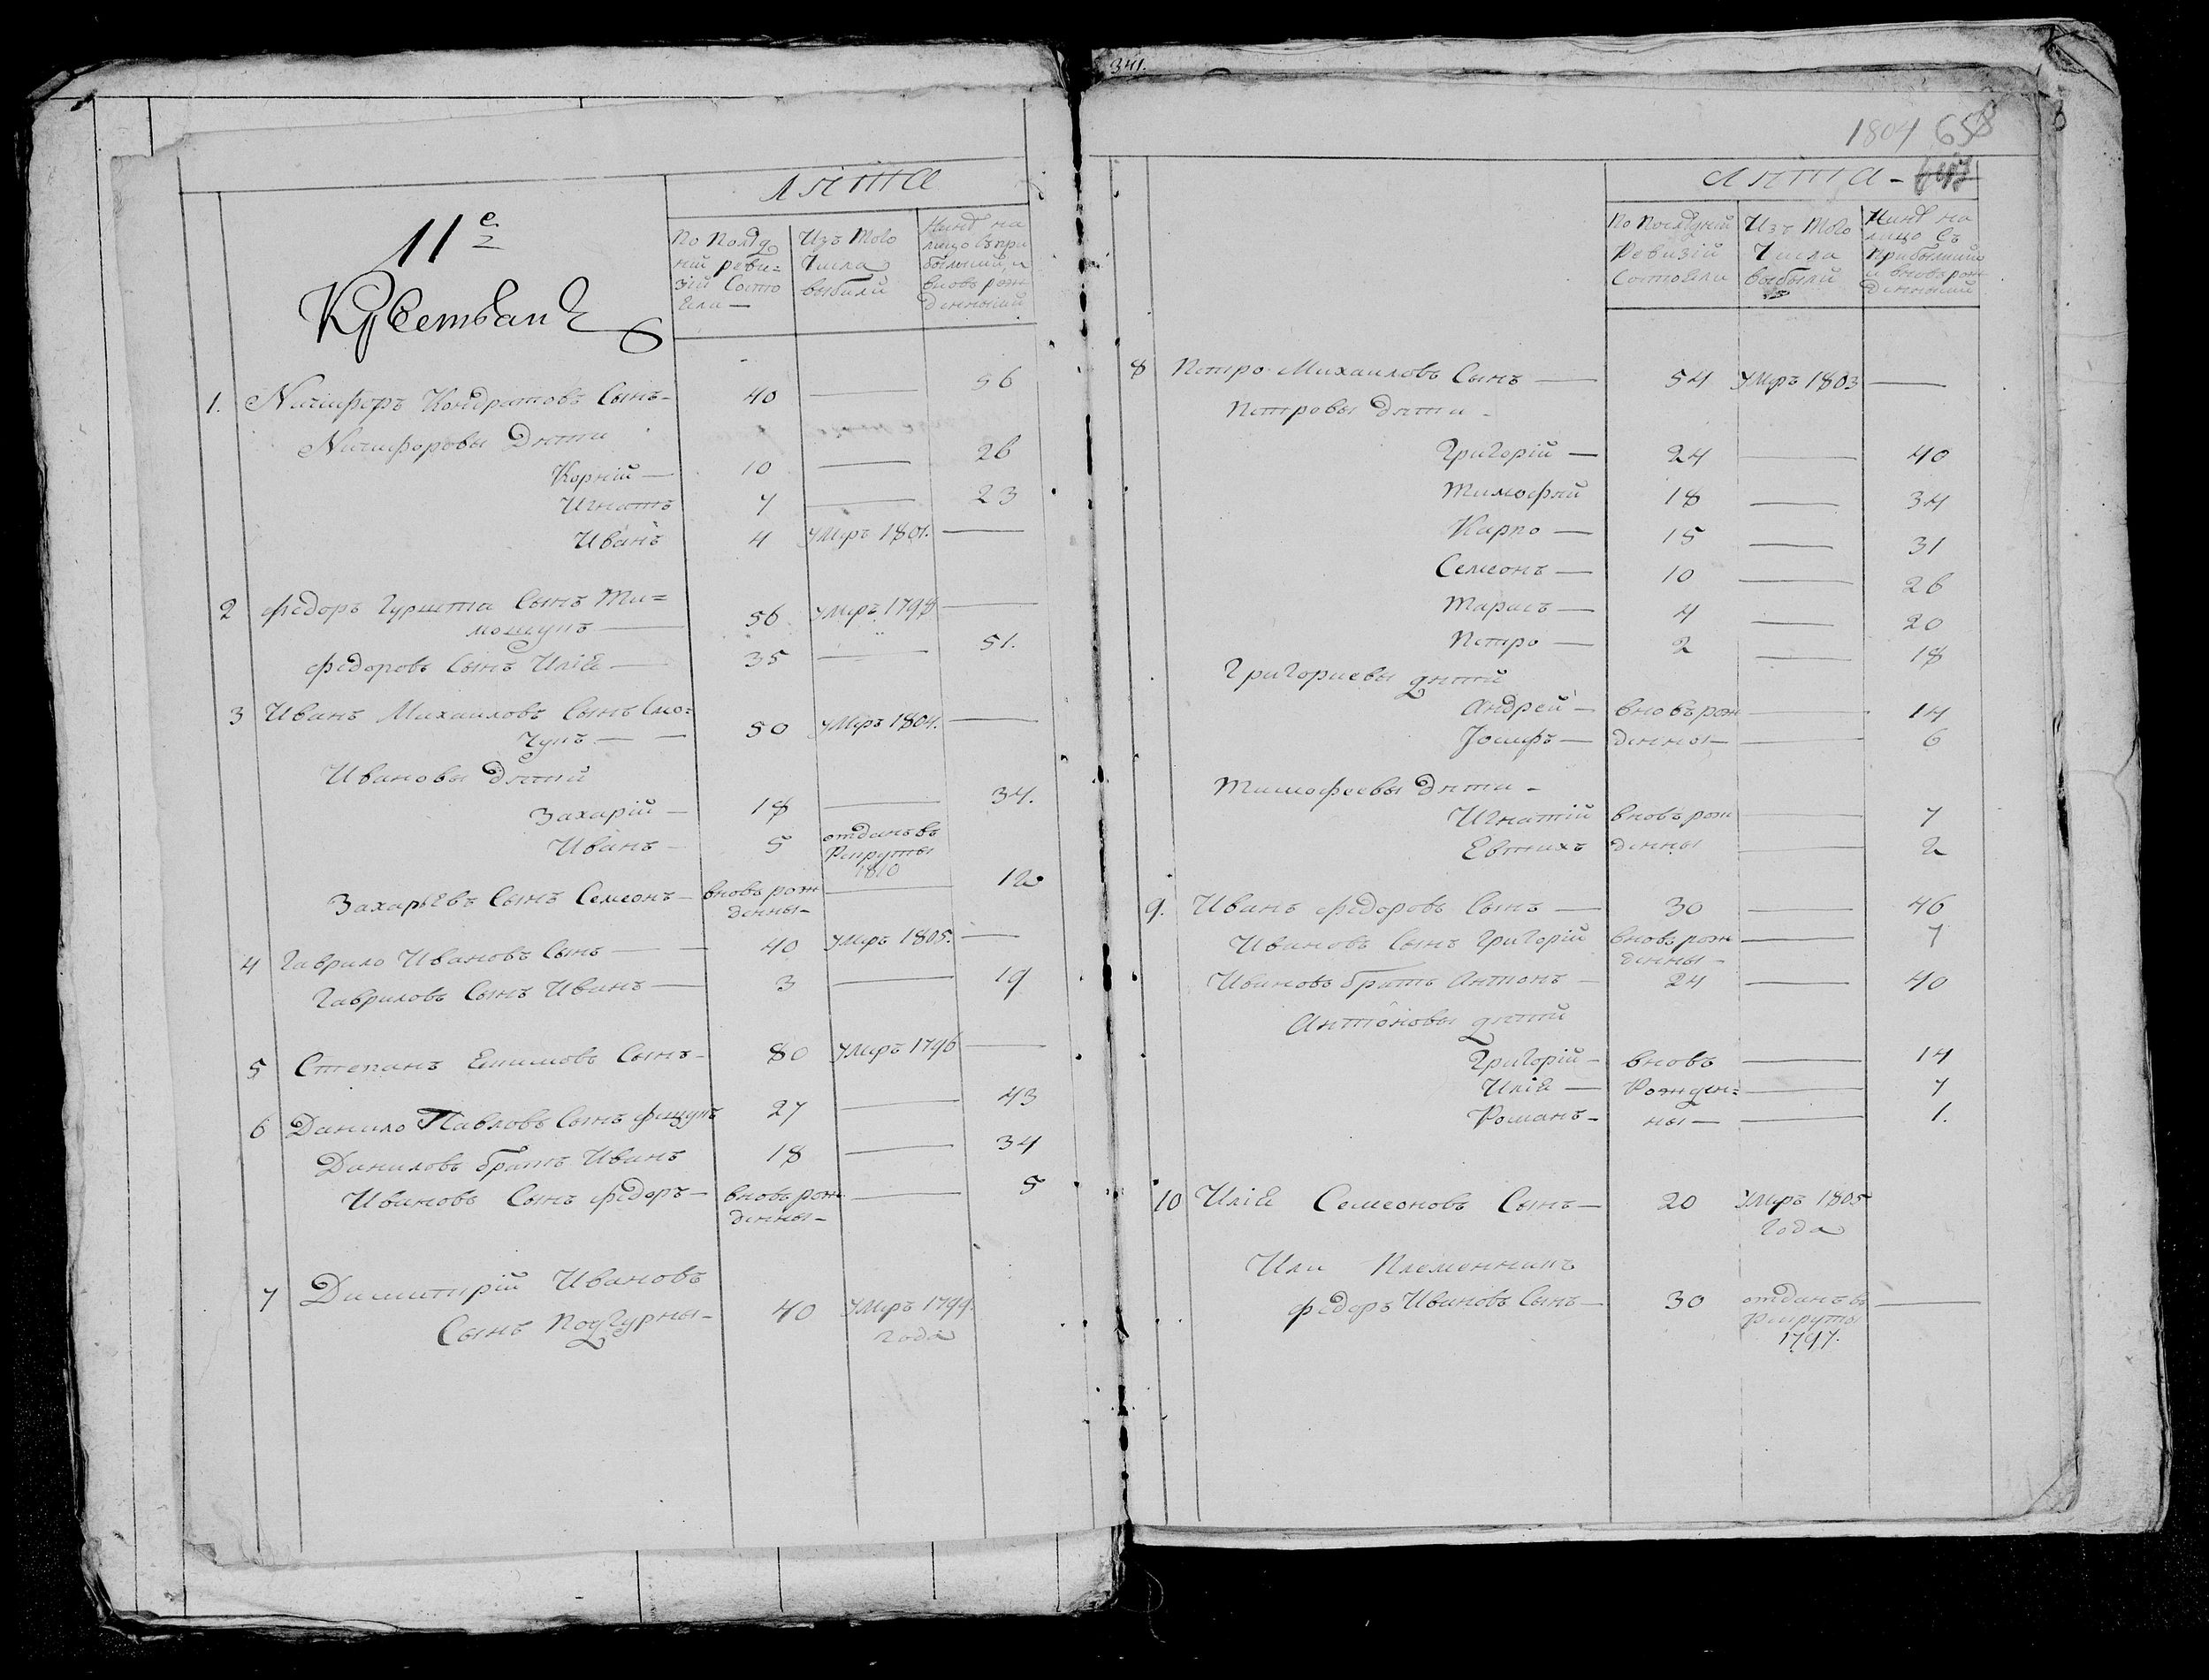 ЛѢТА
11е
Крестьанѣ
По Послѣд
ній реви=
зіи состо
яли —
Изъ того
числа
выбыли
Нинѣ на
лицо съ при
былими, и
вновъ рож
денными
1. Ничифоръ Кондратовъ Сынъ — 40 — 56
Ничифоровы Дѣти
Корній — 10 — 26
Игнатъ 7 — 23
Иванъ 4 умръ 1801. —
2 Федоръ Гуршта Сынъ Ти=
мощукъ — 56 умръ 1798 —
Федоровъ Сынъ Иліа — 35 — 51.
3 Иванъ Михаиловъ Сынъ Смо=
чукъ — 50 умръ 1804. —
Ивановы дѣтій
Захарій — 18 — 34.
Иванъ — 5 отданъ въ
Рекруты
1810
Захарьевъ Сынъ Семеонъ — вновъ рож
денны — 12
4 Гаврило Ивановъ Сынъ — 40 умръ 1805. —
Гавриловъ Сынъ Иванъ — 3 — 19
5 Степанъ Екимовъ Сынъ — 80 умръ 1796 —
6 Данило Павловъ Сынъ Фищукъ 27 — 43
Даниловъ братъ Иванъ 18 — 34
Ивановъ Сынъ Федоръ — вновъ рож — 5
денны —
7 Димитрій Ивановъ
Сынъ Подгурны — 40 умръ 1799.
года
341.
1804 658
ЛѢТА —
По Послѣдній
Ревизіи
Состояли
Изъ того
Числа
выбыли
Нинѣ на
лицо съ
прибылими
и вновъ рож
денными
8 Петро Михаиловъ Сынъ — 54 умръ 1803 —
Петровы дѣти —
Григорій — 24 — 40
Тимофѣй 18 — 34
Карпо — 15 — 31
Семеонъ — 10 — 26
Тарасъ — 4 — 20
Петро — 2 — 18
Григориевы дѣтій
Андрей — вновъ рож — 14
Іосифъ — денны — 6
Тимофеевы дѣти —
Игнатій вновъ рож — 7
Евтихъ денны — 2
9. Иванъ Федоровъ Сынъ — 30 — 46
Ивановъ Сынъ Григорій вновъ рож — 7
денны —
Ивановъ братъ Антонъ — 24 — 40
Антоновы дѣтій
Григорій — вновъ — 14
Иліа — Рожден= — 7
Романъ — ны — 1.
10 Иліа Семеоновъ Сынъ — 20 умръ 1805
года
Или Племенникъ
Федоръ Ивановъ Сынъ — 30 отданъ въ —
Рекруты
1797.